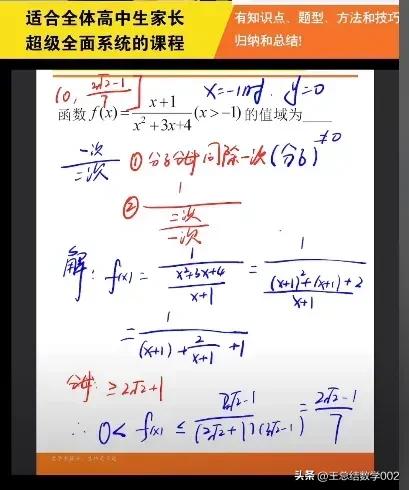 适合全体高中生家长
超级全面系统的课程
有知识点、题型、方法和技巧
归纳和总结!
(0, (2√2-1)/7]
x=-1时, y=0
函数 f(x)=(x+1)/(x²+3x+4)(x>-1)的值域为____
一次/二次 ①分子分母同除一次(分子)≠0
② 1/(二次/一次)
解: f(x)= 1/((x²+3x+4)/(x+1)) = 1/(((x+1)²+(x+1)+2)/(x+1))
= 1/((x+1)+2/(x+1)+1)
分母 ≥2√2+1
∴ 0< f(x) ≤ (2√2-1)/((2√2+1)(2√2-1)) = (2√2-1)/7
头条 @王总结数学002